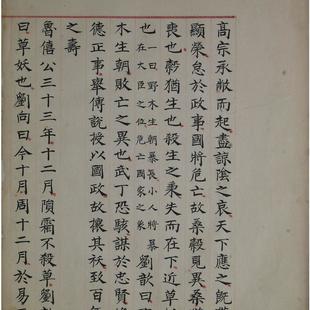 高宗承敝而起盡諒陰之哀天下應之既
顯榮怠於政事國將危亡故桑穀見異桑
喪也穀猶生也殺生之秉失而在下近草
也一曰野木生朝暴長小人將暴在大臣之位危亡國家之象劉歆曰
木生朝敗亡之異也武丁恐駭謀於忠賢
德正事舉傅說授以國政故攘其祅致百年
之壽
魯僖公三十三年十二月隕霜不殺草劉
曰草妖也劉向曰今十月周十二月於易